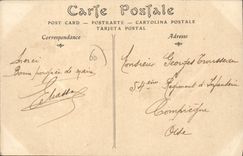 Carte Postale
POST CARD - POSTKARTE - CARTOLINA POSTALE
TARJETA POSTAL
Correspondance
Adresse
60
Merci
Bonne
Monsieur Georges Trousseau
54ème Régiment d'Infanterie
Compiègne
Oise